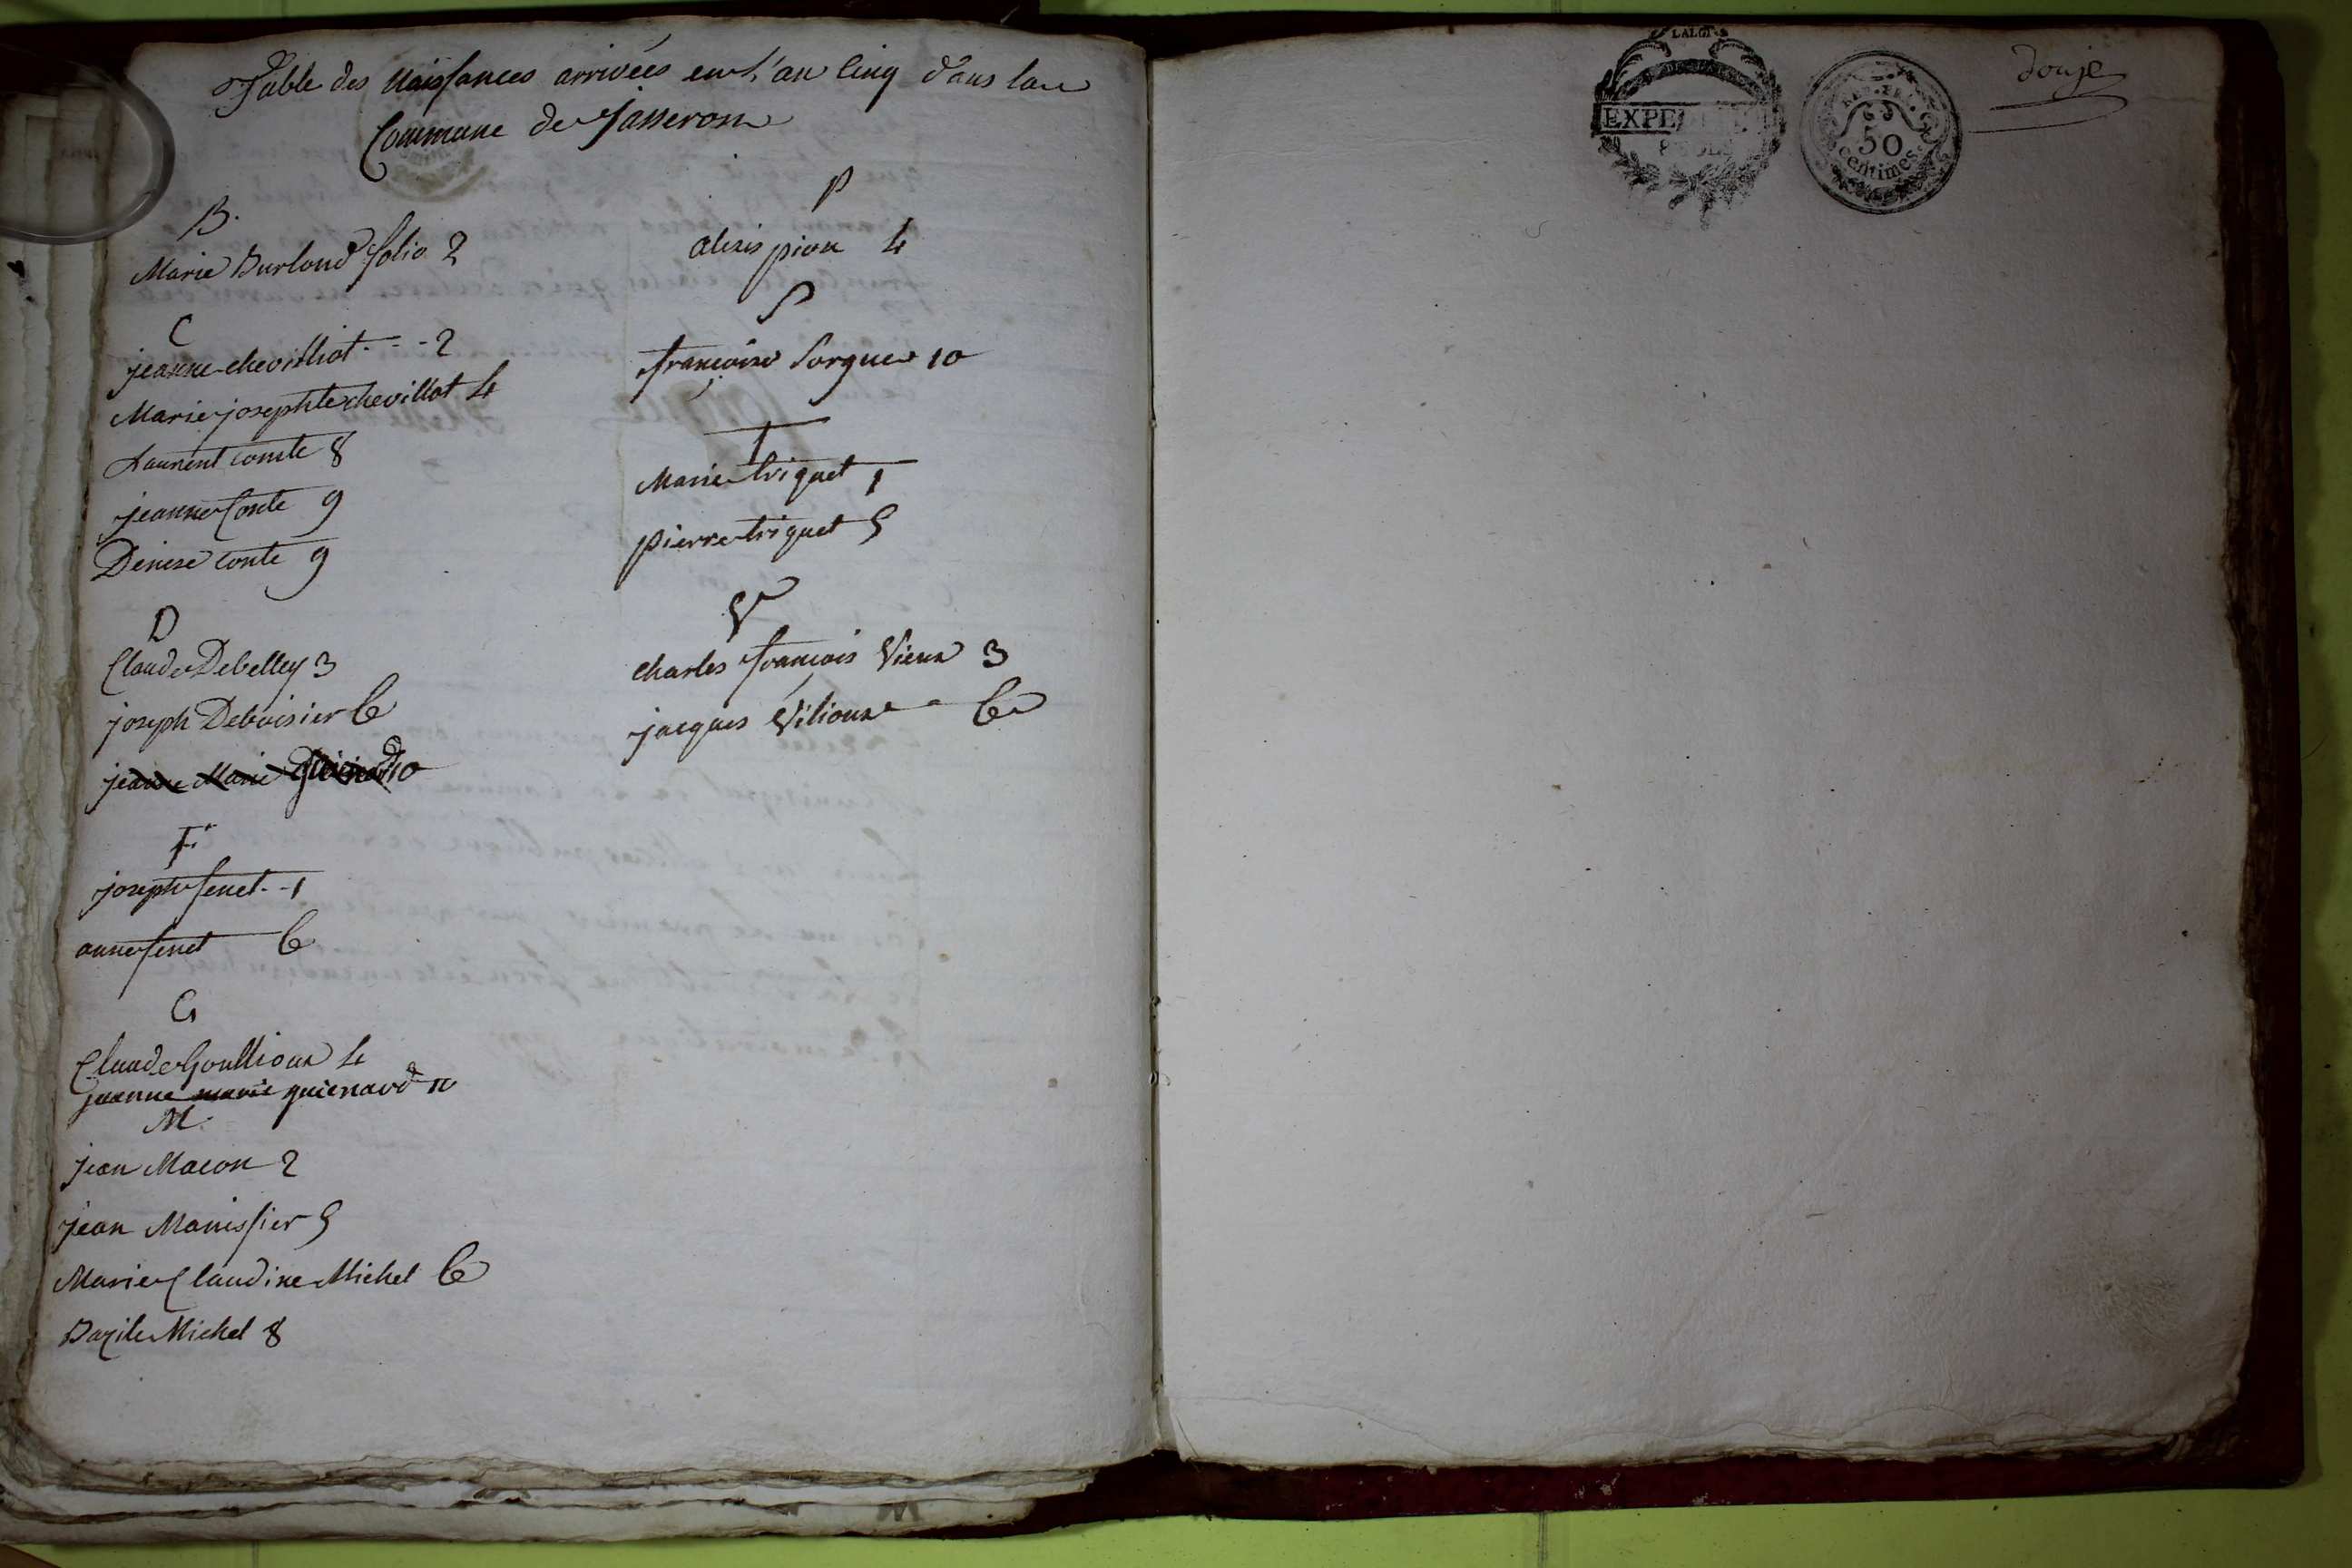 Table des Naissances arrivées en l'an cinq dans la
Commune de Jasseron
B.
Marie Burloud folio 2
C
jeanne chevilliot - - - 2
Marie josephte chevillot 4
Laurent comte 8
jeanne Conte 9
Denise conte 9
D
Claude Debelley 3
joseph Deboisier 6
jeanne Marie 10
F
joseph fenet - - 1
anne fenet 6
G
Claude Goullioux 4
jeanne marie guienard 10
M
jean Macon 2
jean Manissier 5
Marie Claudine Michel 6
Bazile Michel 8
P
alexis pion 4
S
françoise Sorgue 10
T
Marie triquet 1
pierre triquet 5
V
charles françois Vieux 3
jacques Vilioux - 6
EXPE
REP. FRA.
50
centimes.
douze